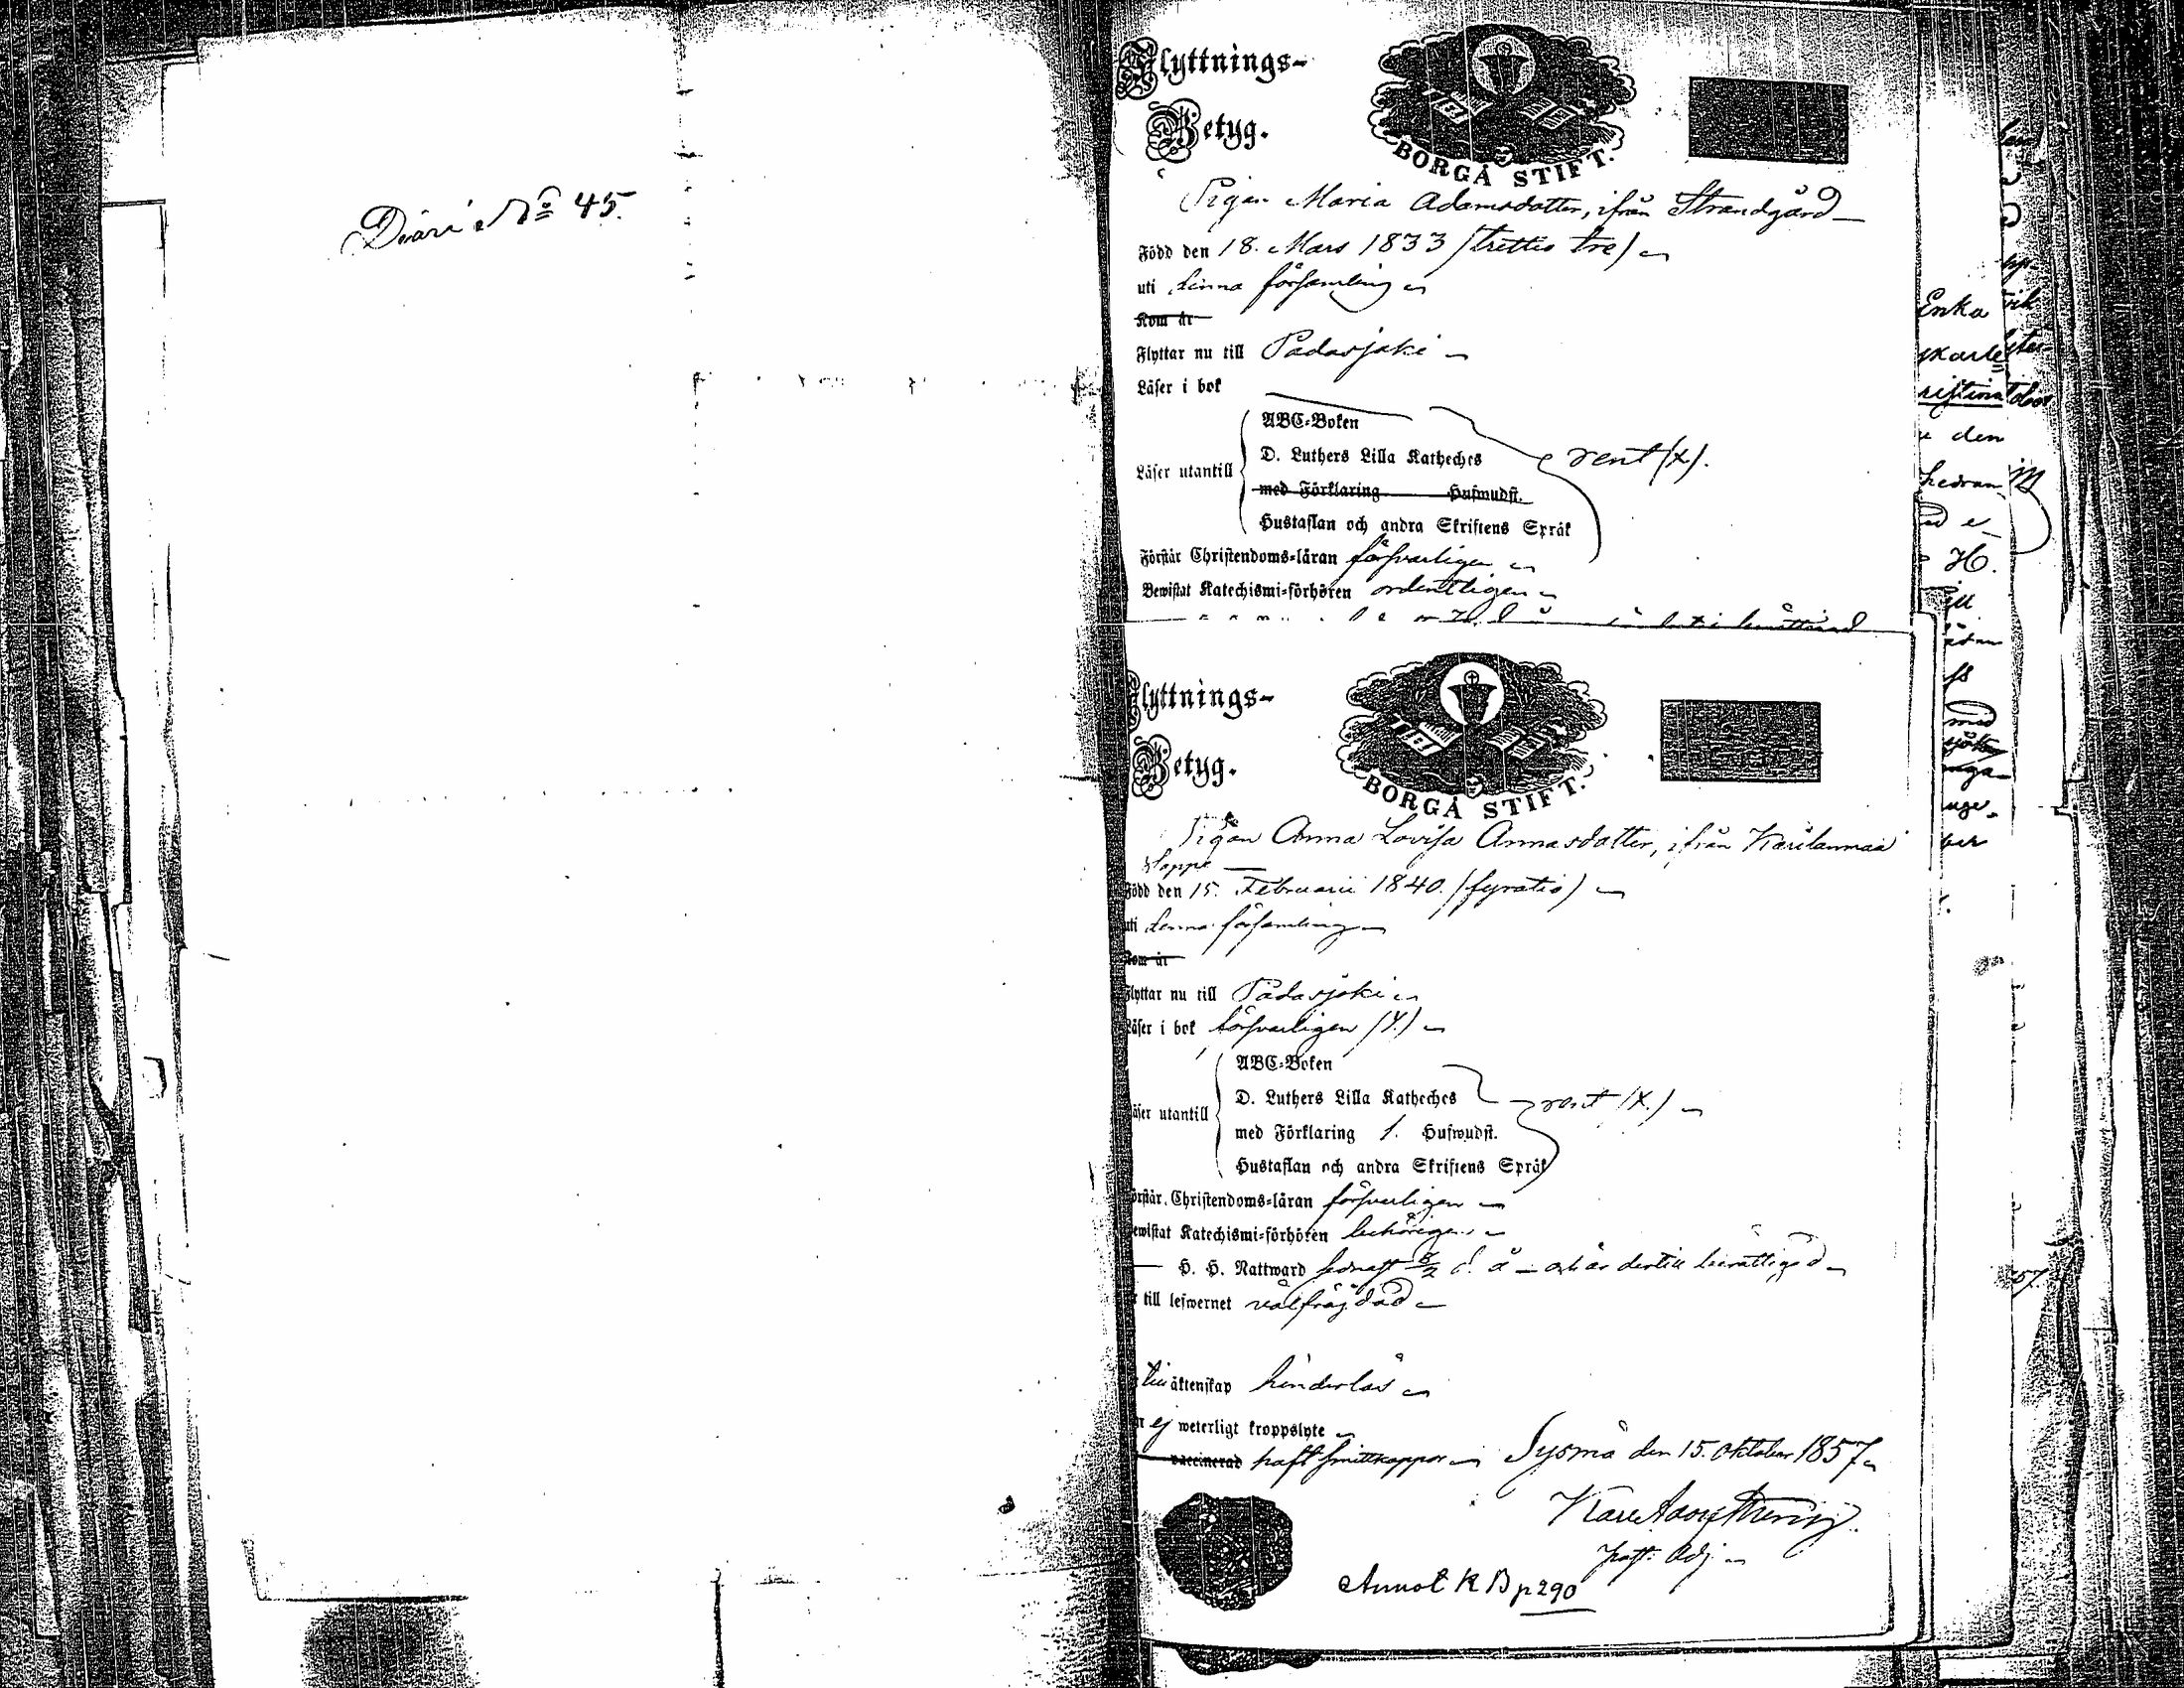 Diari No 45.
Flyttnings-
Betyg.
BORGÅ STIFT.
Pigan Maria Adamsdotter, ifrån Strandgård
Född den 18. Mars 1833 (trettio tre)
uti denna församling
Kom år
Flyttar nu till Padasjoki
Läser i bok
ABC-Boken
D. Luthers Lilla Katheches
Läser utantill
rent (x).
med Förklaring Hufwudst.
Hustaflan och andra Skriftens Språk
Förstår Christendoms-läran försvarligen
Bewistat Katechismi-förhören ordentligen
Flyttnings-
Betyg.
BORGÅ STIFT.
Pigan Anna Lovisa Annasdotter, ifrån Karilanmaa
Född den 15. Februarii 1840. (fyratio)
uti denna församling
Kom år
Flyttar nu till Padasjoki
Läser i bok försvarligen
ABC-Boken
D. Luthers Lilla Katheches
Läser utantill
rent (x.)
med Förklaring 1. Hufwudst.
Hustaflan och andra Skriftens Språk
Förstår Christendoms-läran försvarligen
Bewistat Katechismi-förhören behörigen
H. H. Nattward sednast d. å och är dertill berättigad
till lefwernet välfräjdad
till äktenskap hinderlös
ej weterligt kroppslyte
vaccinerad haft smittkoppor Sysmä den 15. Oktober 1857
Adj.
Annot K B p 290
Enka
den
H.